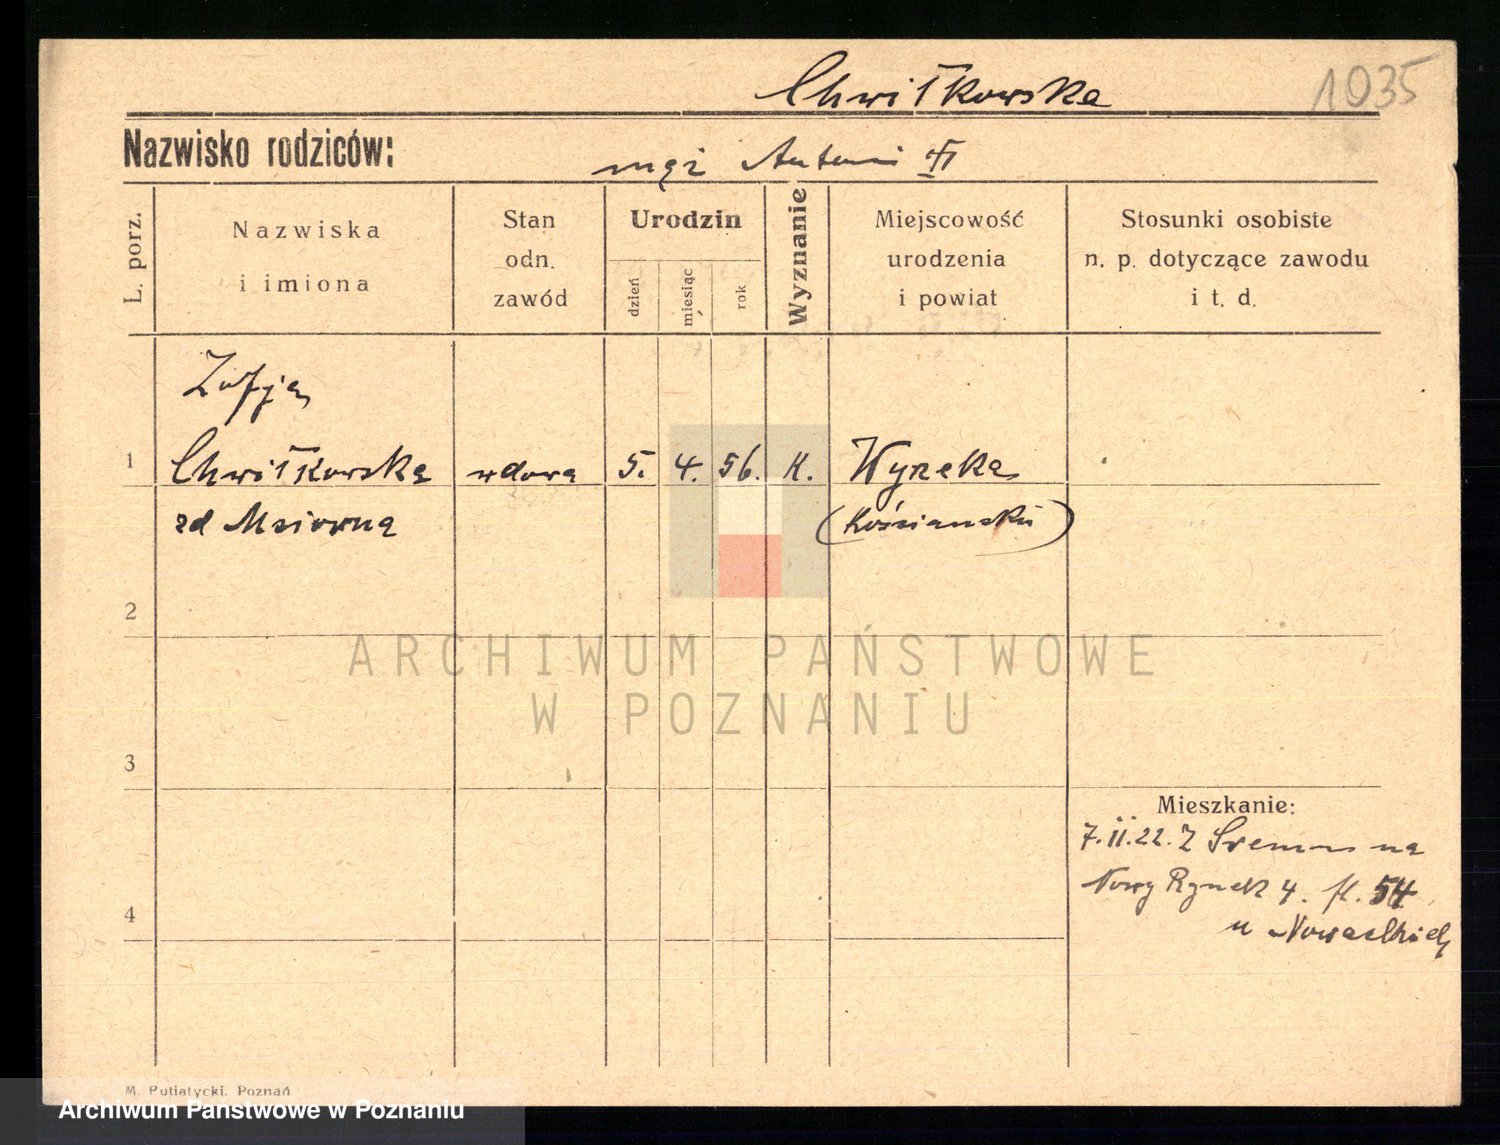 Chwiłkowska
1035
Nazwisko rodziców:
mąż Antoni
L. porz.
Nazwiska
i imiona
Stan
odn.
zawód
Urodzin
dzień
miesiąc
rok
Wyznanie
Miejscowość
urodzenia
i powiat
Stosunki osobiste
n. p. dotyczące zawodu
i t. d.
Zofja
1 Chwiłkowska wdowa 5. 4. 56. K. Wyreka
(Kościański)
2
3
4
Mieszkanie:
7.II.22. Z Śremu na
Nowy Rynek 4. 54
u Nowackich
ARCHIWUM PAŃSTWOWE
W POZNANIU
M. Putiatycki, Poznań
Archiwum Państwowe w Poznaniu